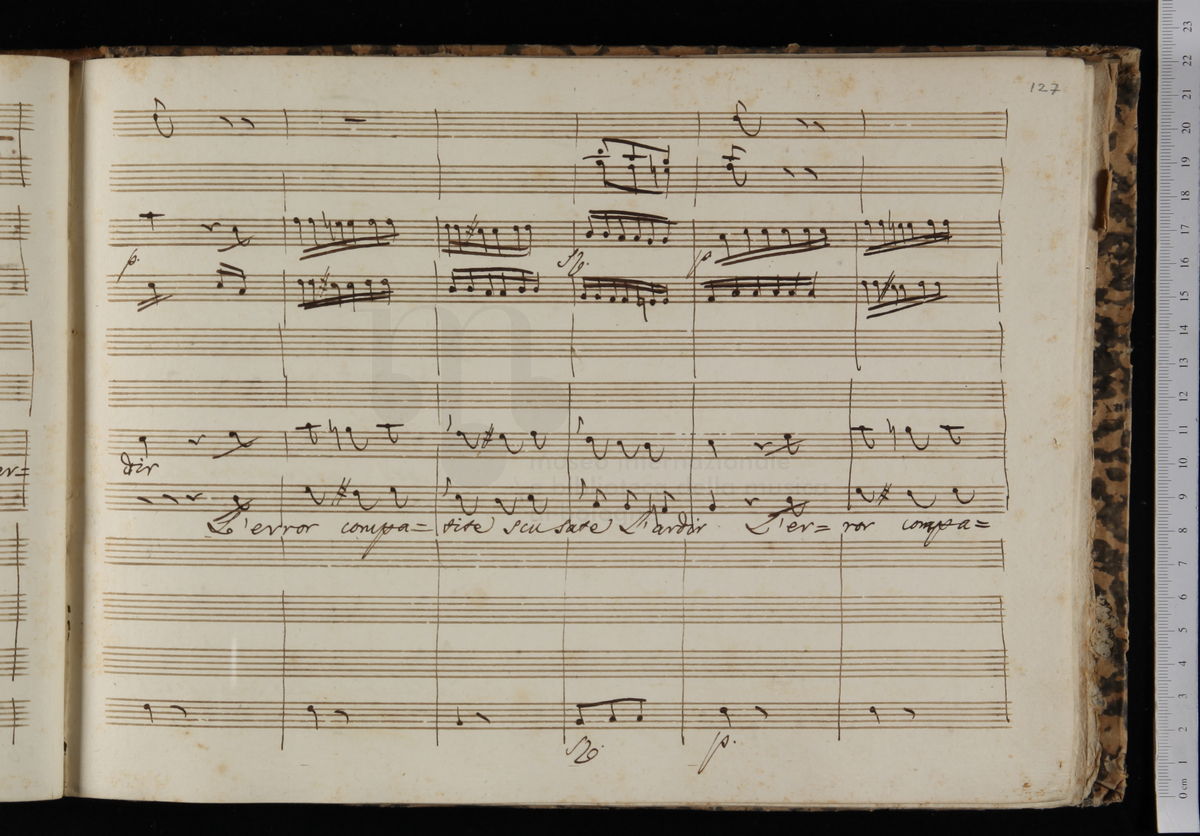 127
p.
Rf.
p
er=
dir
museo internazionale
L'error compa= tite scusate L'ardir L'er= ror compa=
Rf.
p.
23
22
21
20
19
18
17
16
15
14
13
12
11
10
9
8
7
6
5
4
3
2
1
0 cm